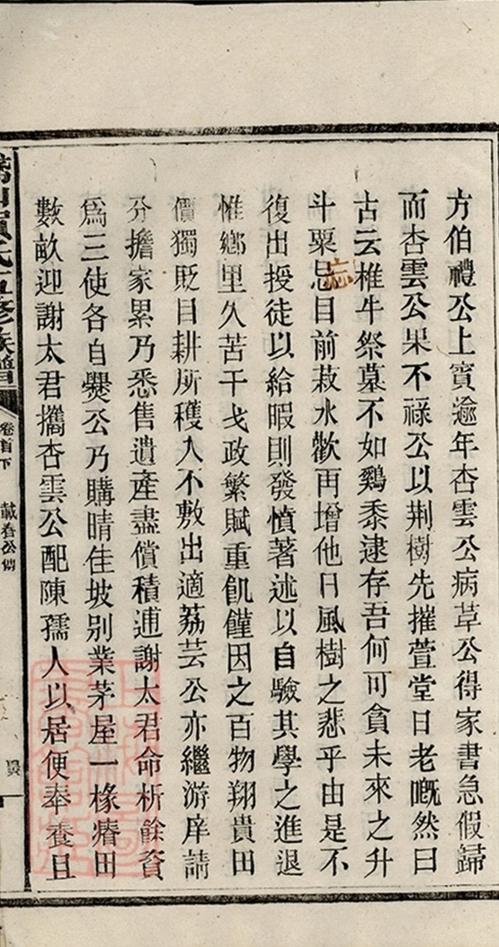 方伯禮公上賓逾年杏雲公病草公得家書急假歸
而杏雲公果不祿公以荆樹先摧萱堂日老慨然曰
古云椎牛祭墓不如鷄黍逮存吾何可貪未來之升
斗粟忘目前菽水歡再增他日風樹之悲乎由是不
復出授徒以給暇則發憤著述以自驗其學之進退
惟鄉里久苦干戈政繁賦重飢饉因之百物翔貴田
價獨貶目耕所穫入不敷出適荔芸公亦繼游庠請
分擔家累乃悉售遺產盡償積逋謝太君命析餘資
爲三使各自爨公乃購晴佳坡别業茅屋一椽瘠田
數畝迎謝太君攜杏雲公配陳孺人以居便奉養且
氏五修族譜
卷首下
公傳